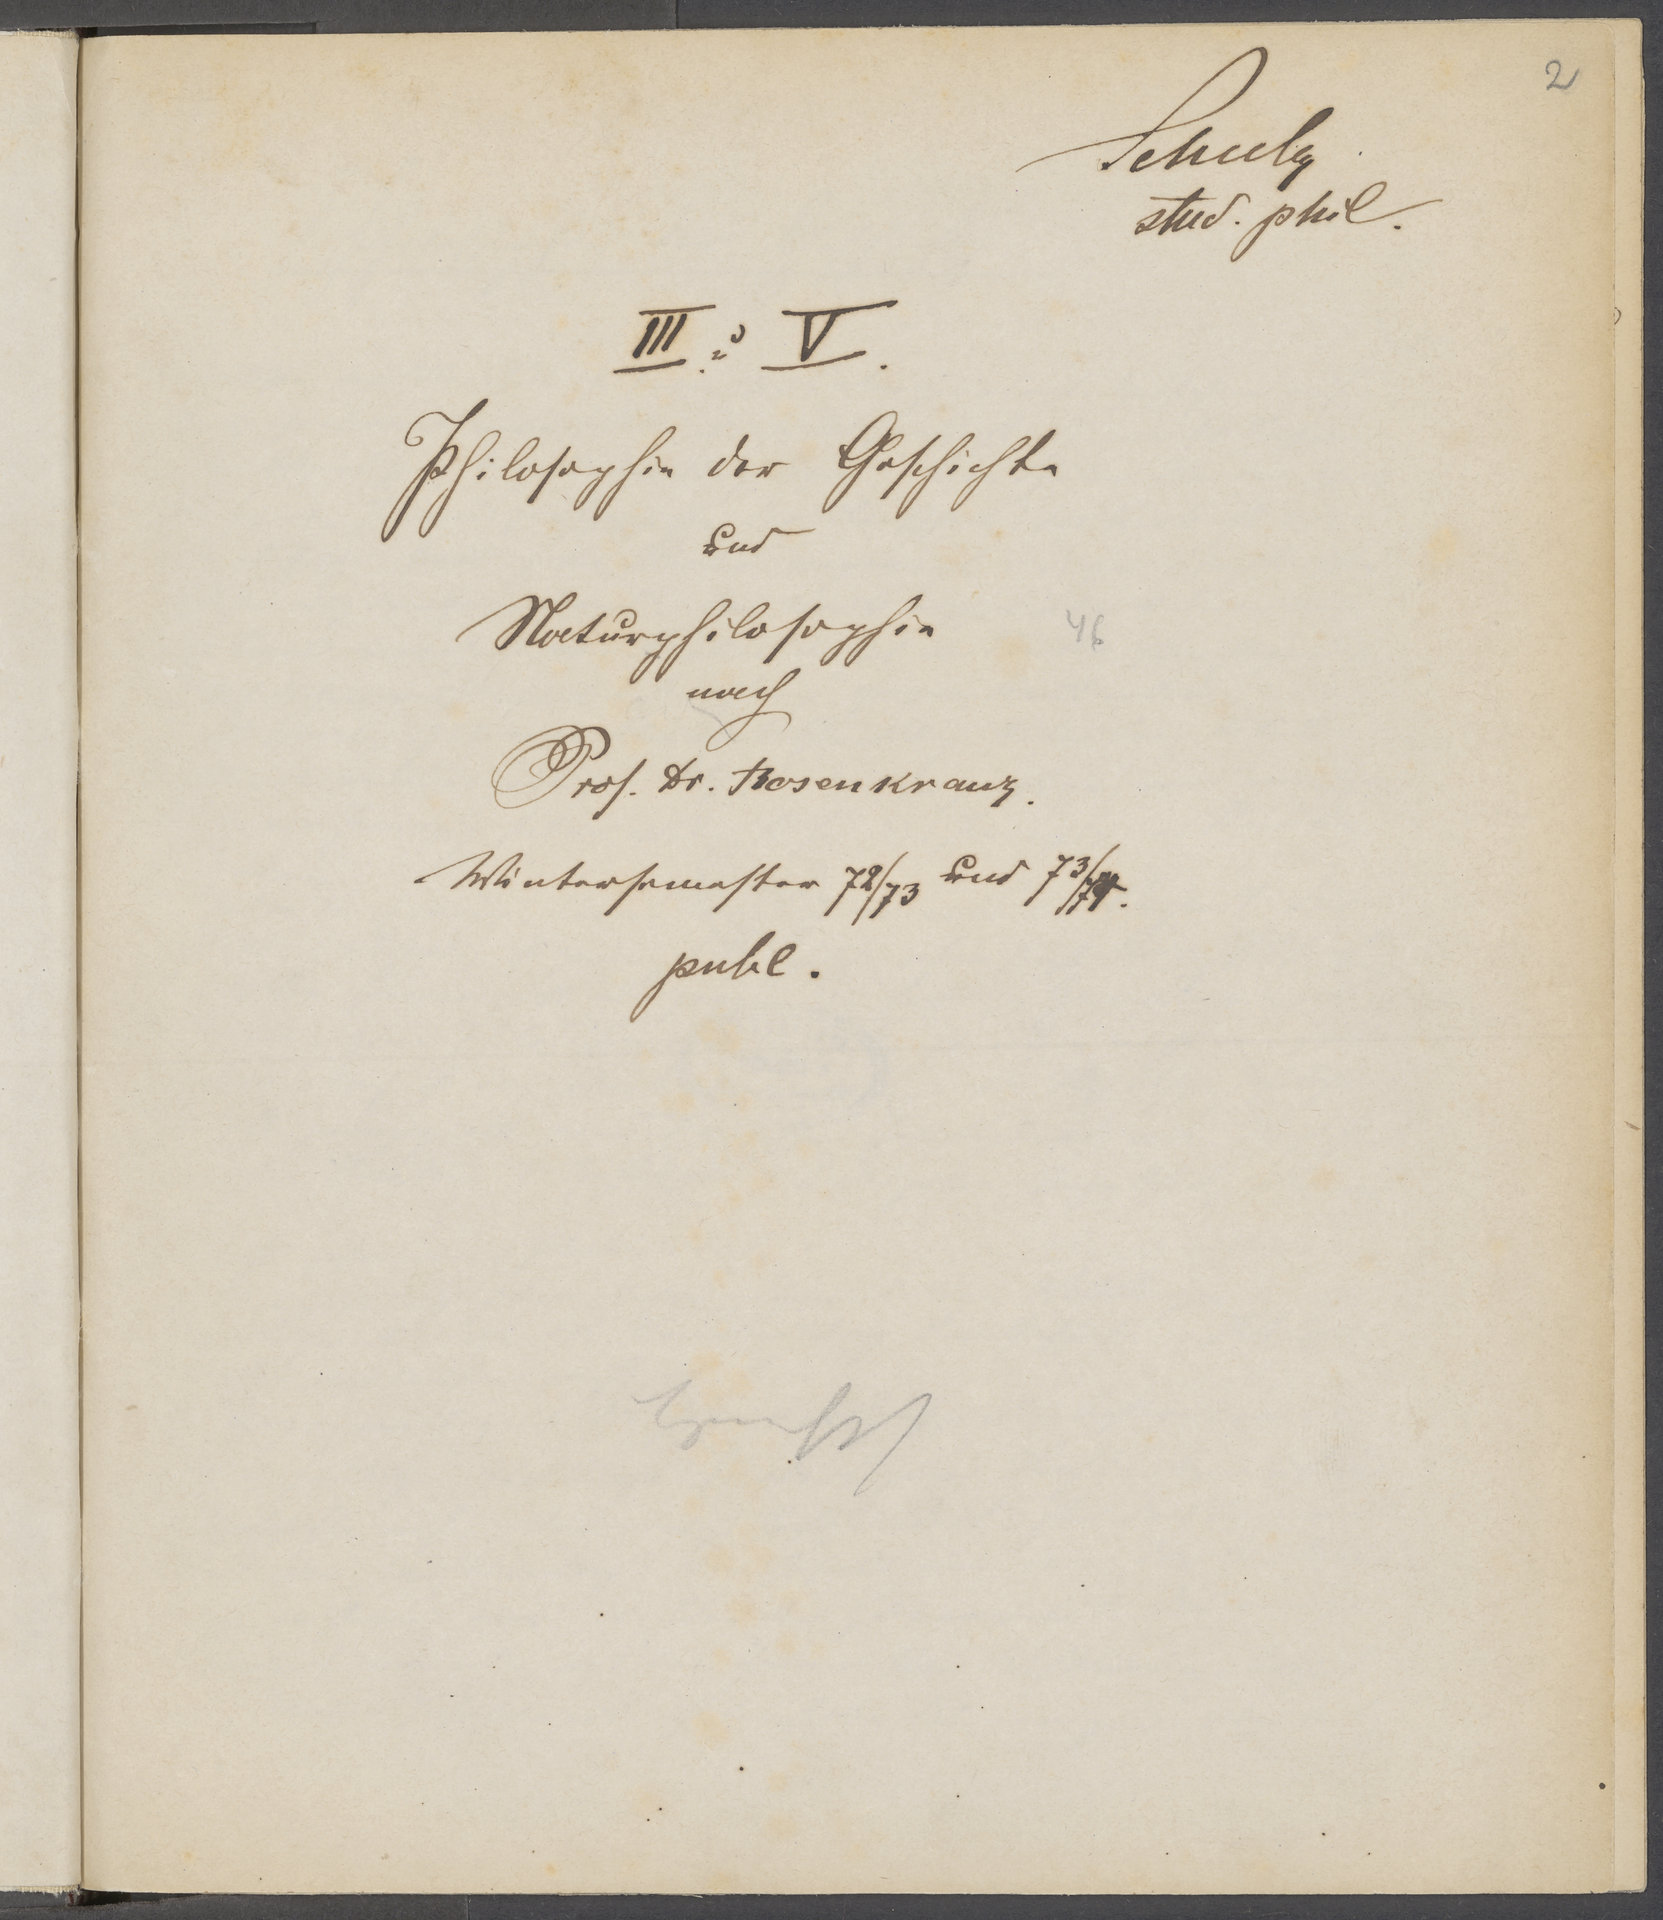 2
Schulz
stud. phil.
III. u. V.
Philosophie der Geschichte
und
Naturphilosophie
nach
Prof. Dr. Rosenkranz.
Wintersemester 72/73 und 73/74.
publ.